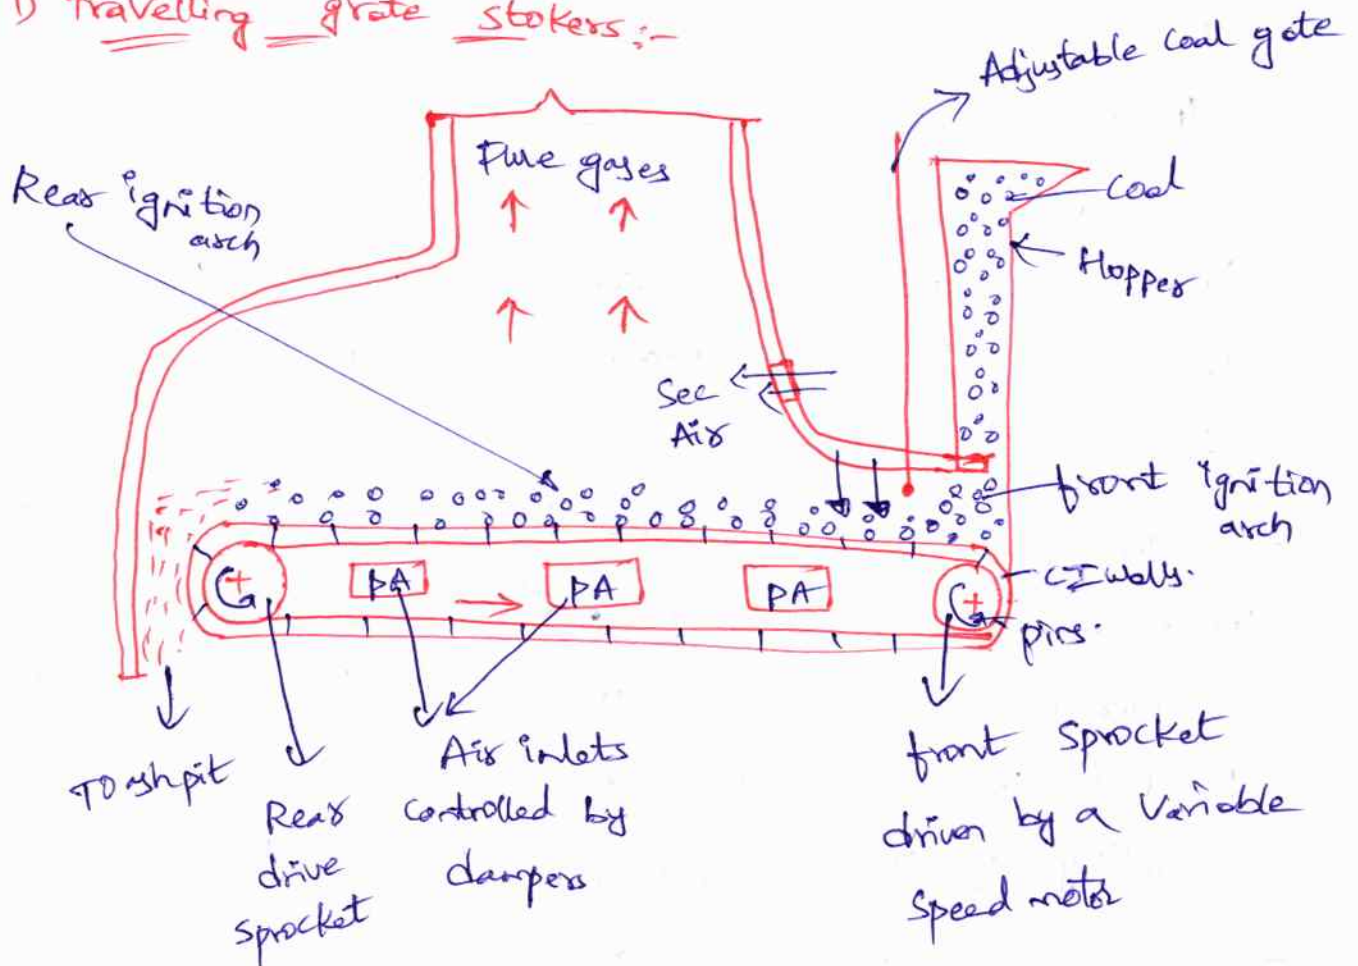 1) Travelling grate stokers:-
Adjustable coal gate
Flue gases
Rear ignition
arch
coal
Hopper
Sec
Air
front ignition
arch
PA
PA
PA
CI walls.
pins.
TO ashpit
Rear
drive
sprocket
Air inlets
controlled by
dampers
front sprocket
driven by a variable
speed motor